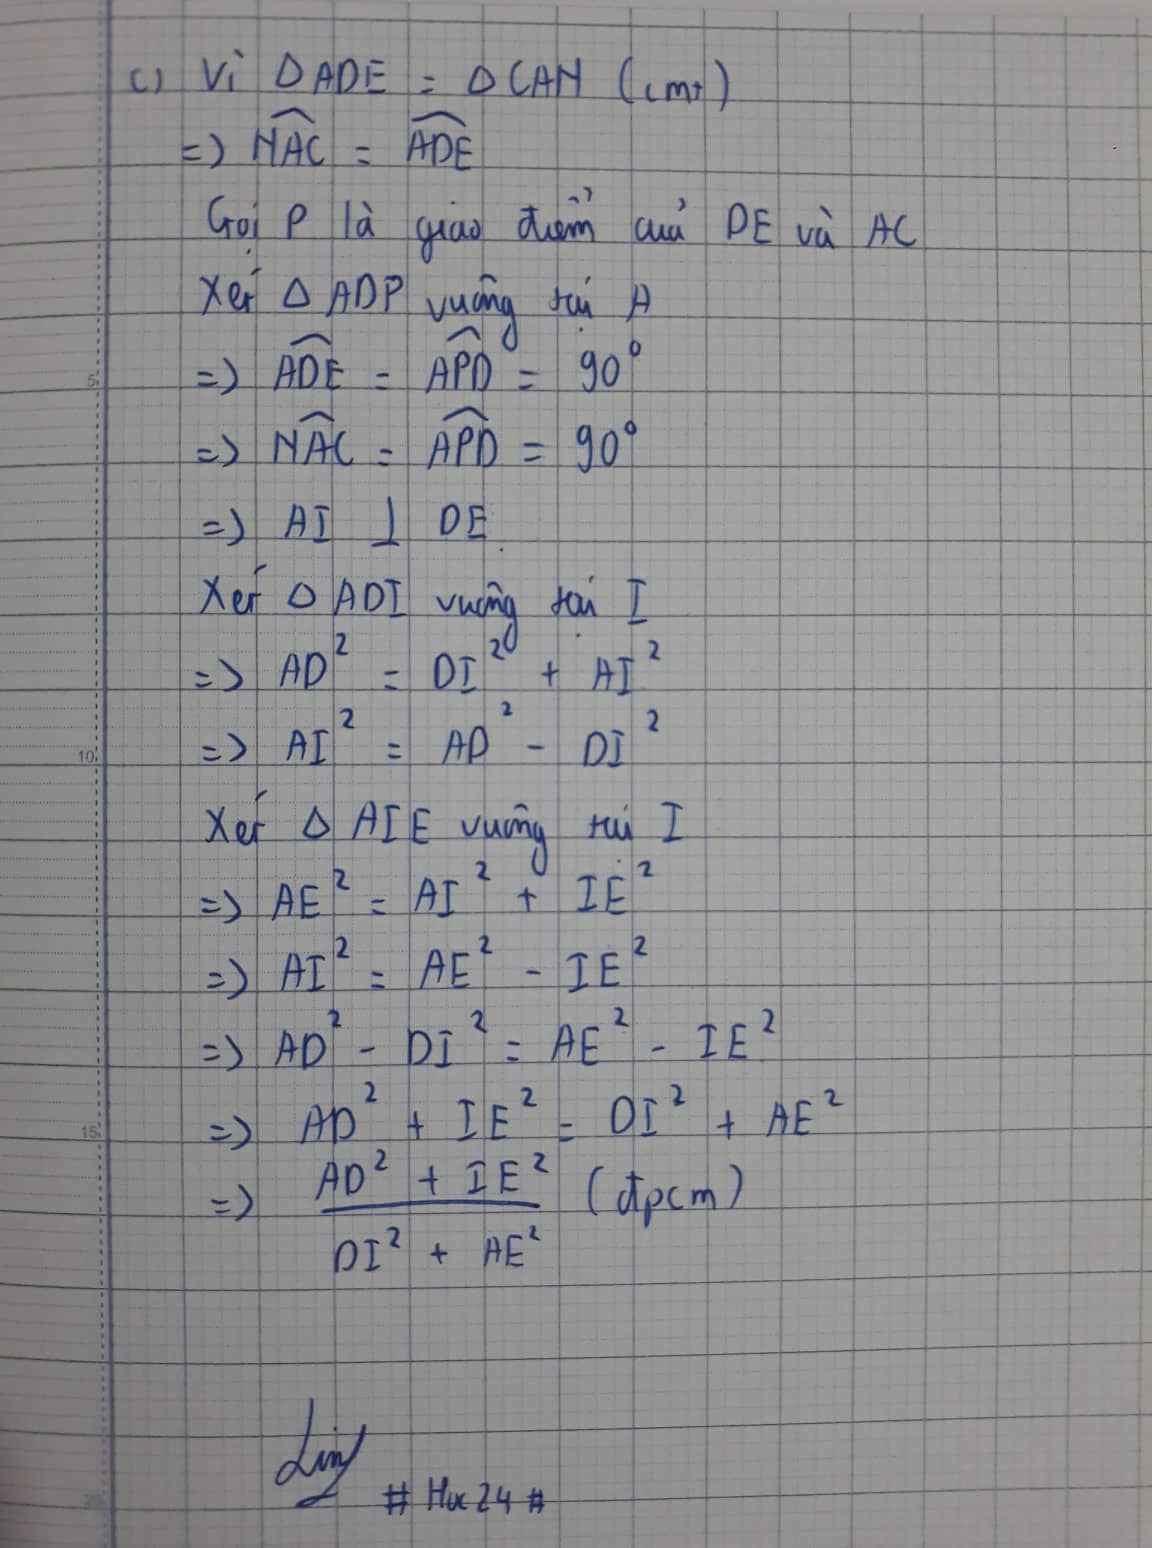 c) Vì ΔADE = ΔCAN (cmt)
=> \widehat{NAC} = \widehat{ADE}
Gọi P là giao điểm của DE và AC
Xét Δ ADP vuông tại A
=> \widehat{ADE} = \widehat{APD} = 90°
=> \widehat{NAC} = \widehat{APD} = 90°
=> AI ⊥ DE
Xét Δ ADI vuông tại I
=> AD² = DI² + AI²
=> AI² = AD² - DI²
Xét Δ AIE vuông tại I
=> AE² = AI² + IE²
=> AI² = AE² - IE²
=> AD² - DI² = AE² - IE²
=> AD² + IE² = DI² + AE²
=> \frac{AD² + IE²}{DI² + AE²} (đpcm)
# Hoc24 #
5
10
15
20